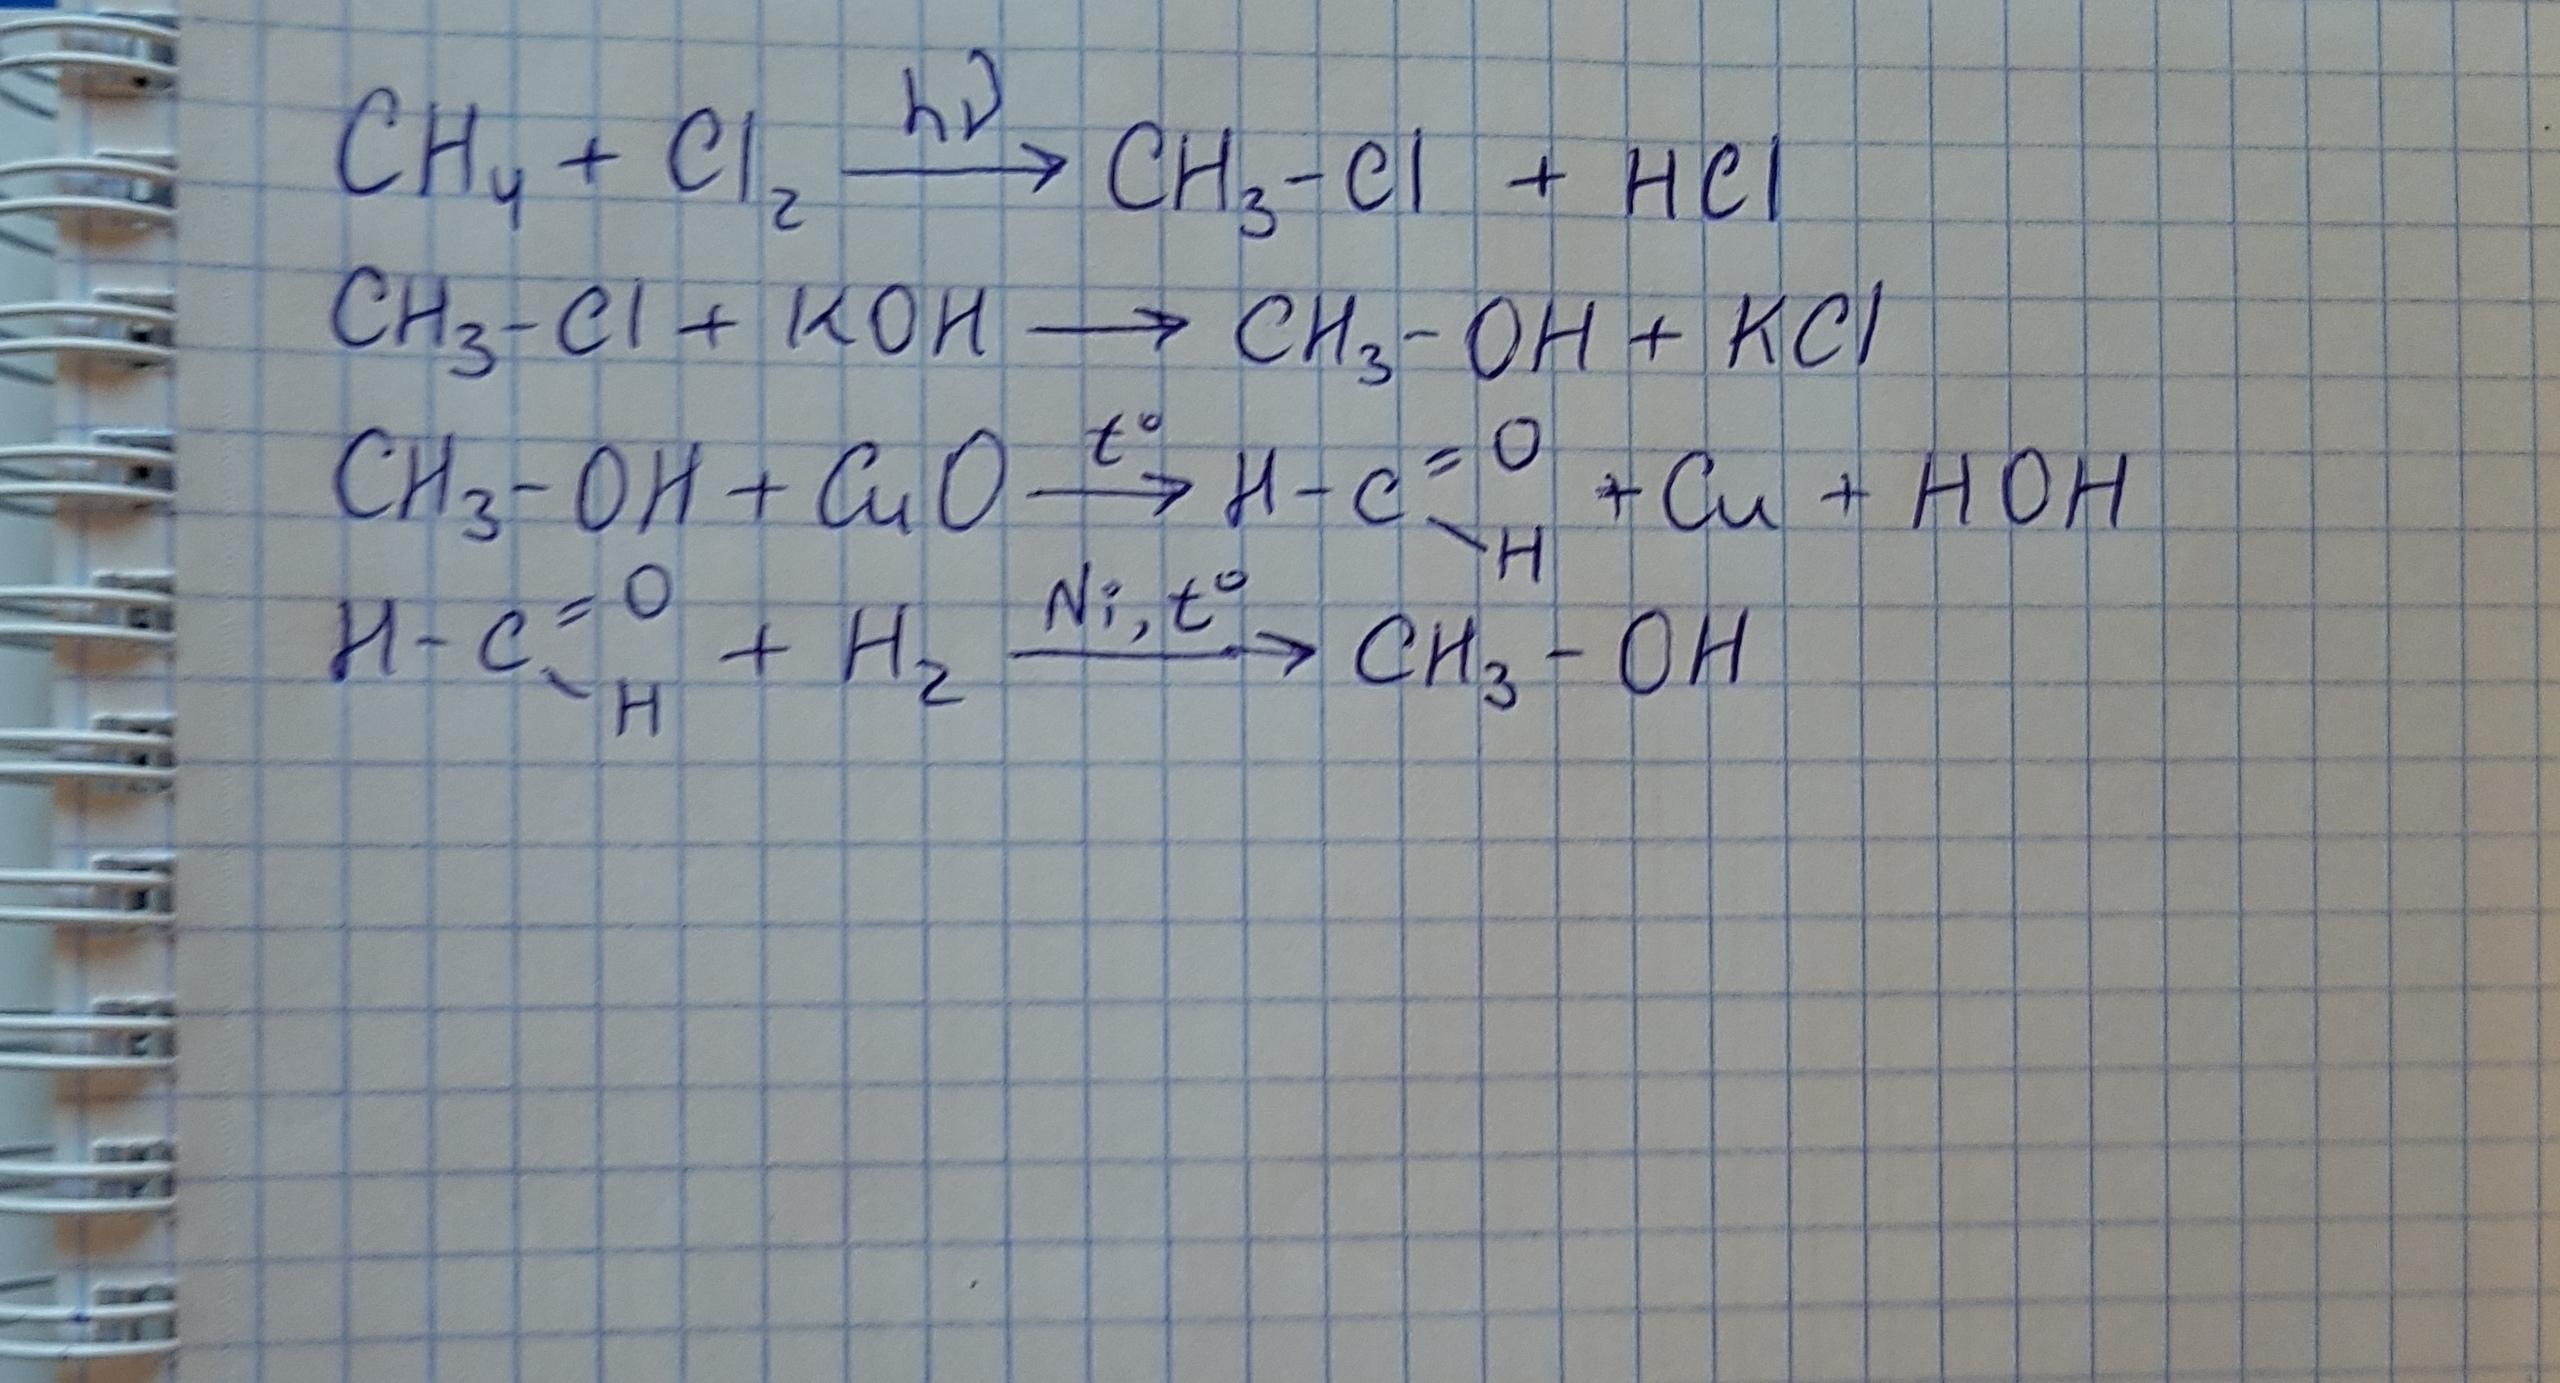 CH₄ + Cl₂ —hν→ CH₃-Cl + HCl
CH₃-Cl + KOH → CH₃-OH + KCl
CH₃-OH + CuO —t°→ H-C(=O)-H + Cu + HOH
H-C(=O)-H + H₂ —Ni, t°→ CH₃-OH